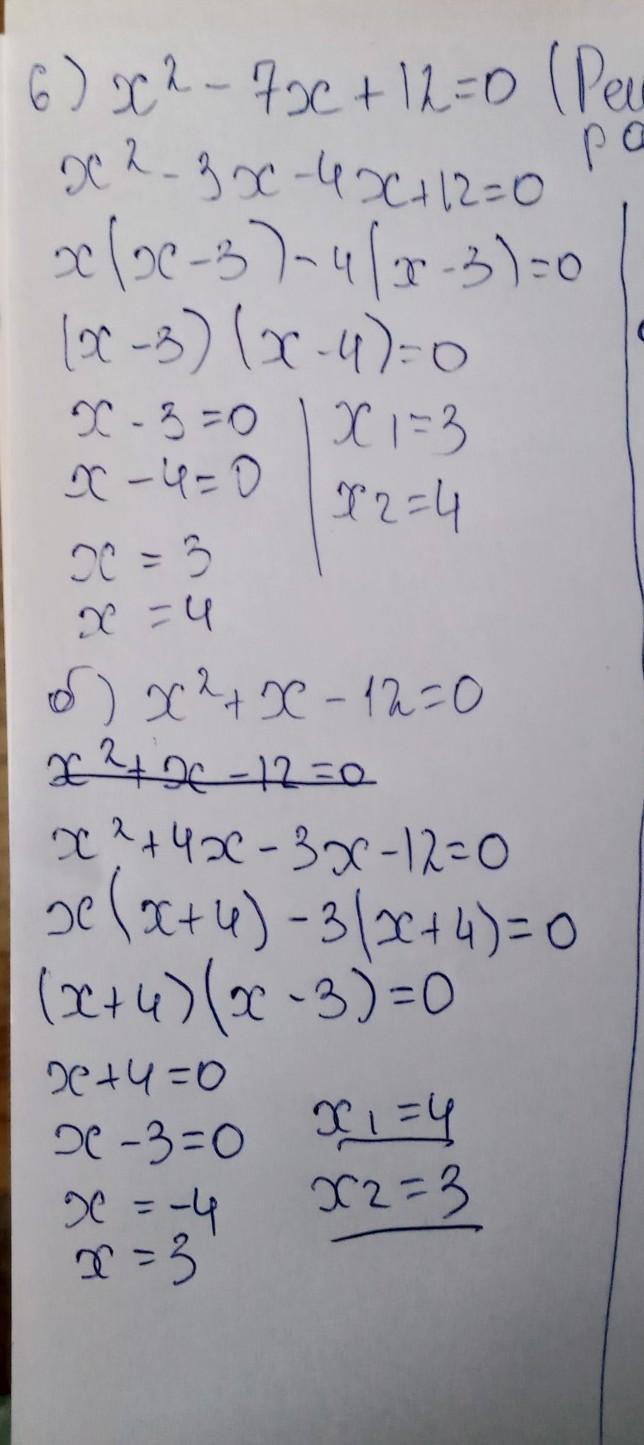 б) x² - 7x + 12 = 0
x² - 3x - 4x + 12 = 0
x(x - 3) - 4(x - 3) = 0
(x - 3)(x - 4) = 0
x - 3 = 0 | x₁ = 3
x - 4 = 0 | x₂ = 4
x = 3
x = 4
б) x² + x - 12 = 0
x² + x - 12 = 0
x² + 4x - 3x - 12 = 0
x(x + 4) - 3(x + 4) = 0
(x + 4)(x - 3) = 0
x + 4 = 0
x - 3 = 0 x₁ = 4
x = -4 x₂ = 3
x = 3